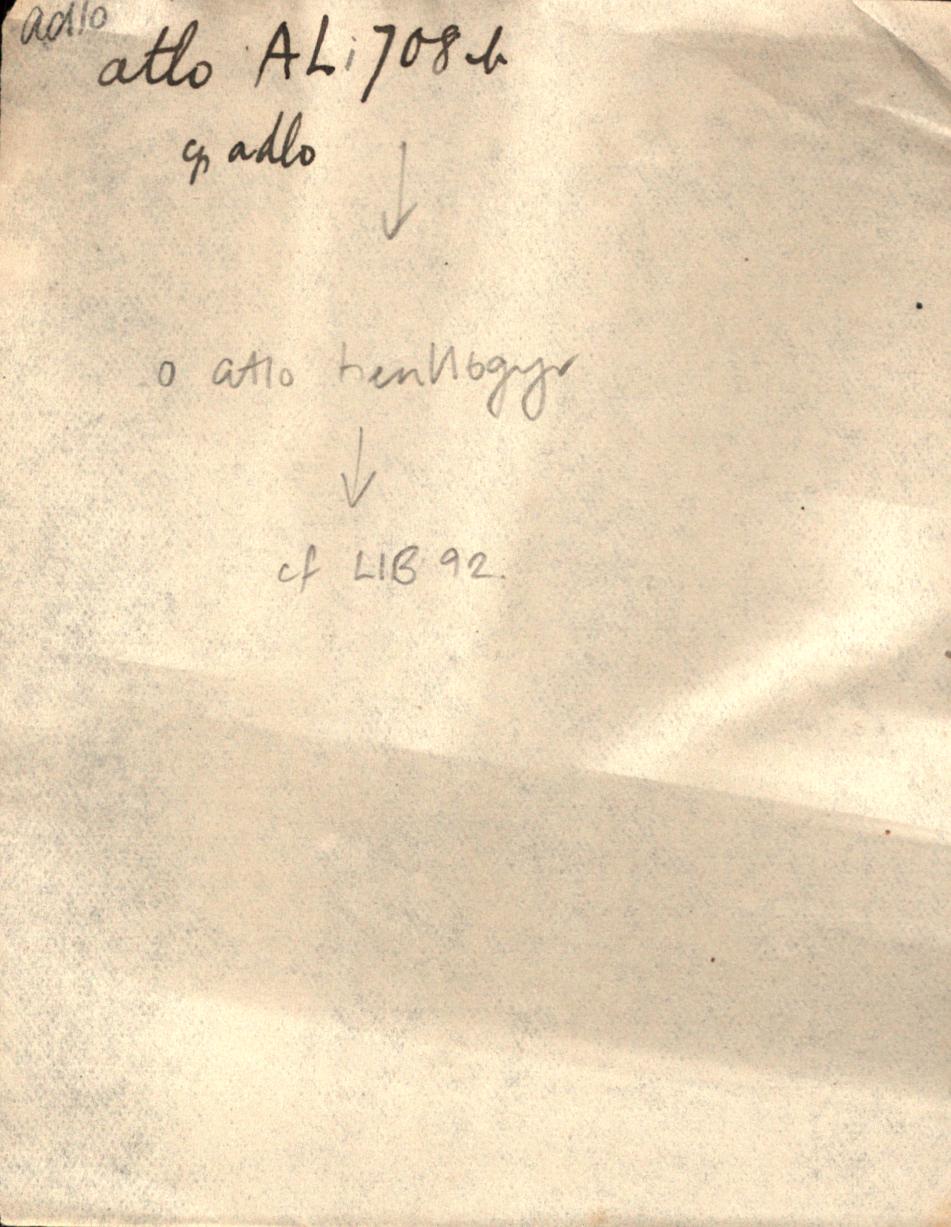 adlo
atlo ALi 708 b
cp adlo
↓
o atlo henllogyr
↓
cf LlB 92.